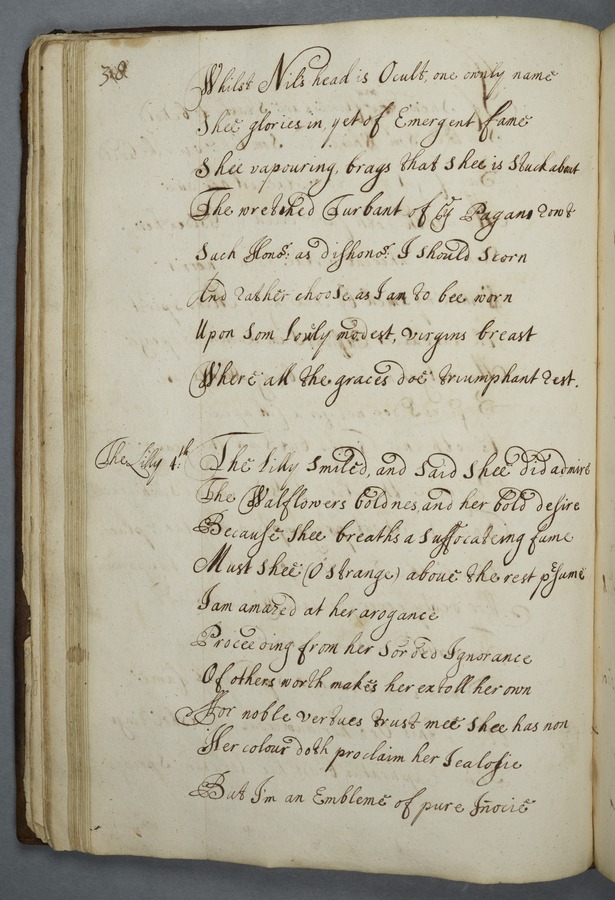 38
Whilst Nils head is Ocult, one ownly name
Shee glories in, yet of Emergent fame
Shee vapouring, brags that shee is stuck about
The wretched Turbant of ye Pagans rout
Such Honr: as dishonr: I should scorn
And rather choose as I am to bee worn
Upon som louly modest, virgins breast
Where all the graces doe triumphant rest.
The Lilly 4th:
The lilly smiled, and said shee did admire
The Walflowers boldnes, and her bold desire
Because shee breaths a suffocateing fume
Must shee (O strange) above the rest psume
I am amazed at her arogance
Proceeding from her sorded Ignorance
Of others worth makes her extoll her own
For noble vertues trust mee shee has non
Her colour doth proclaim her Jealosie
But I'm an Embleme of pure Inocie